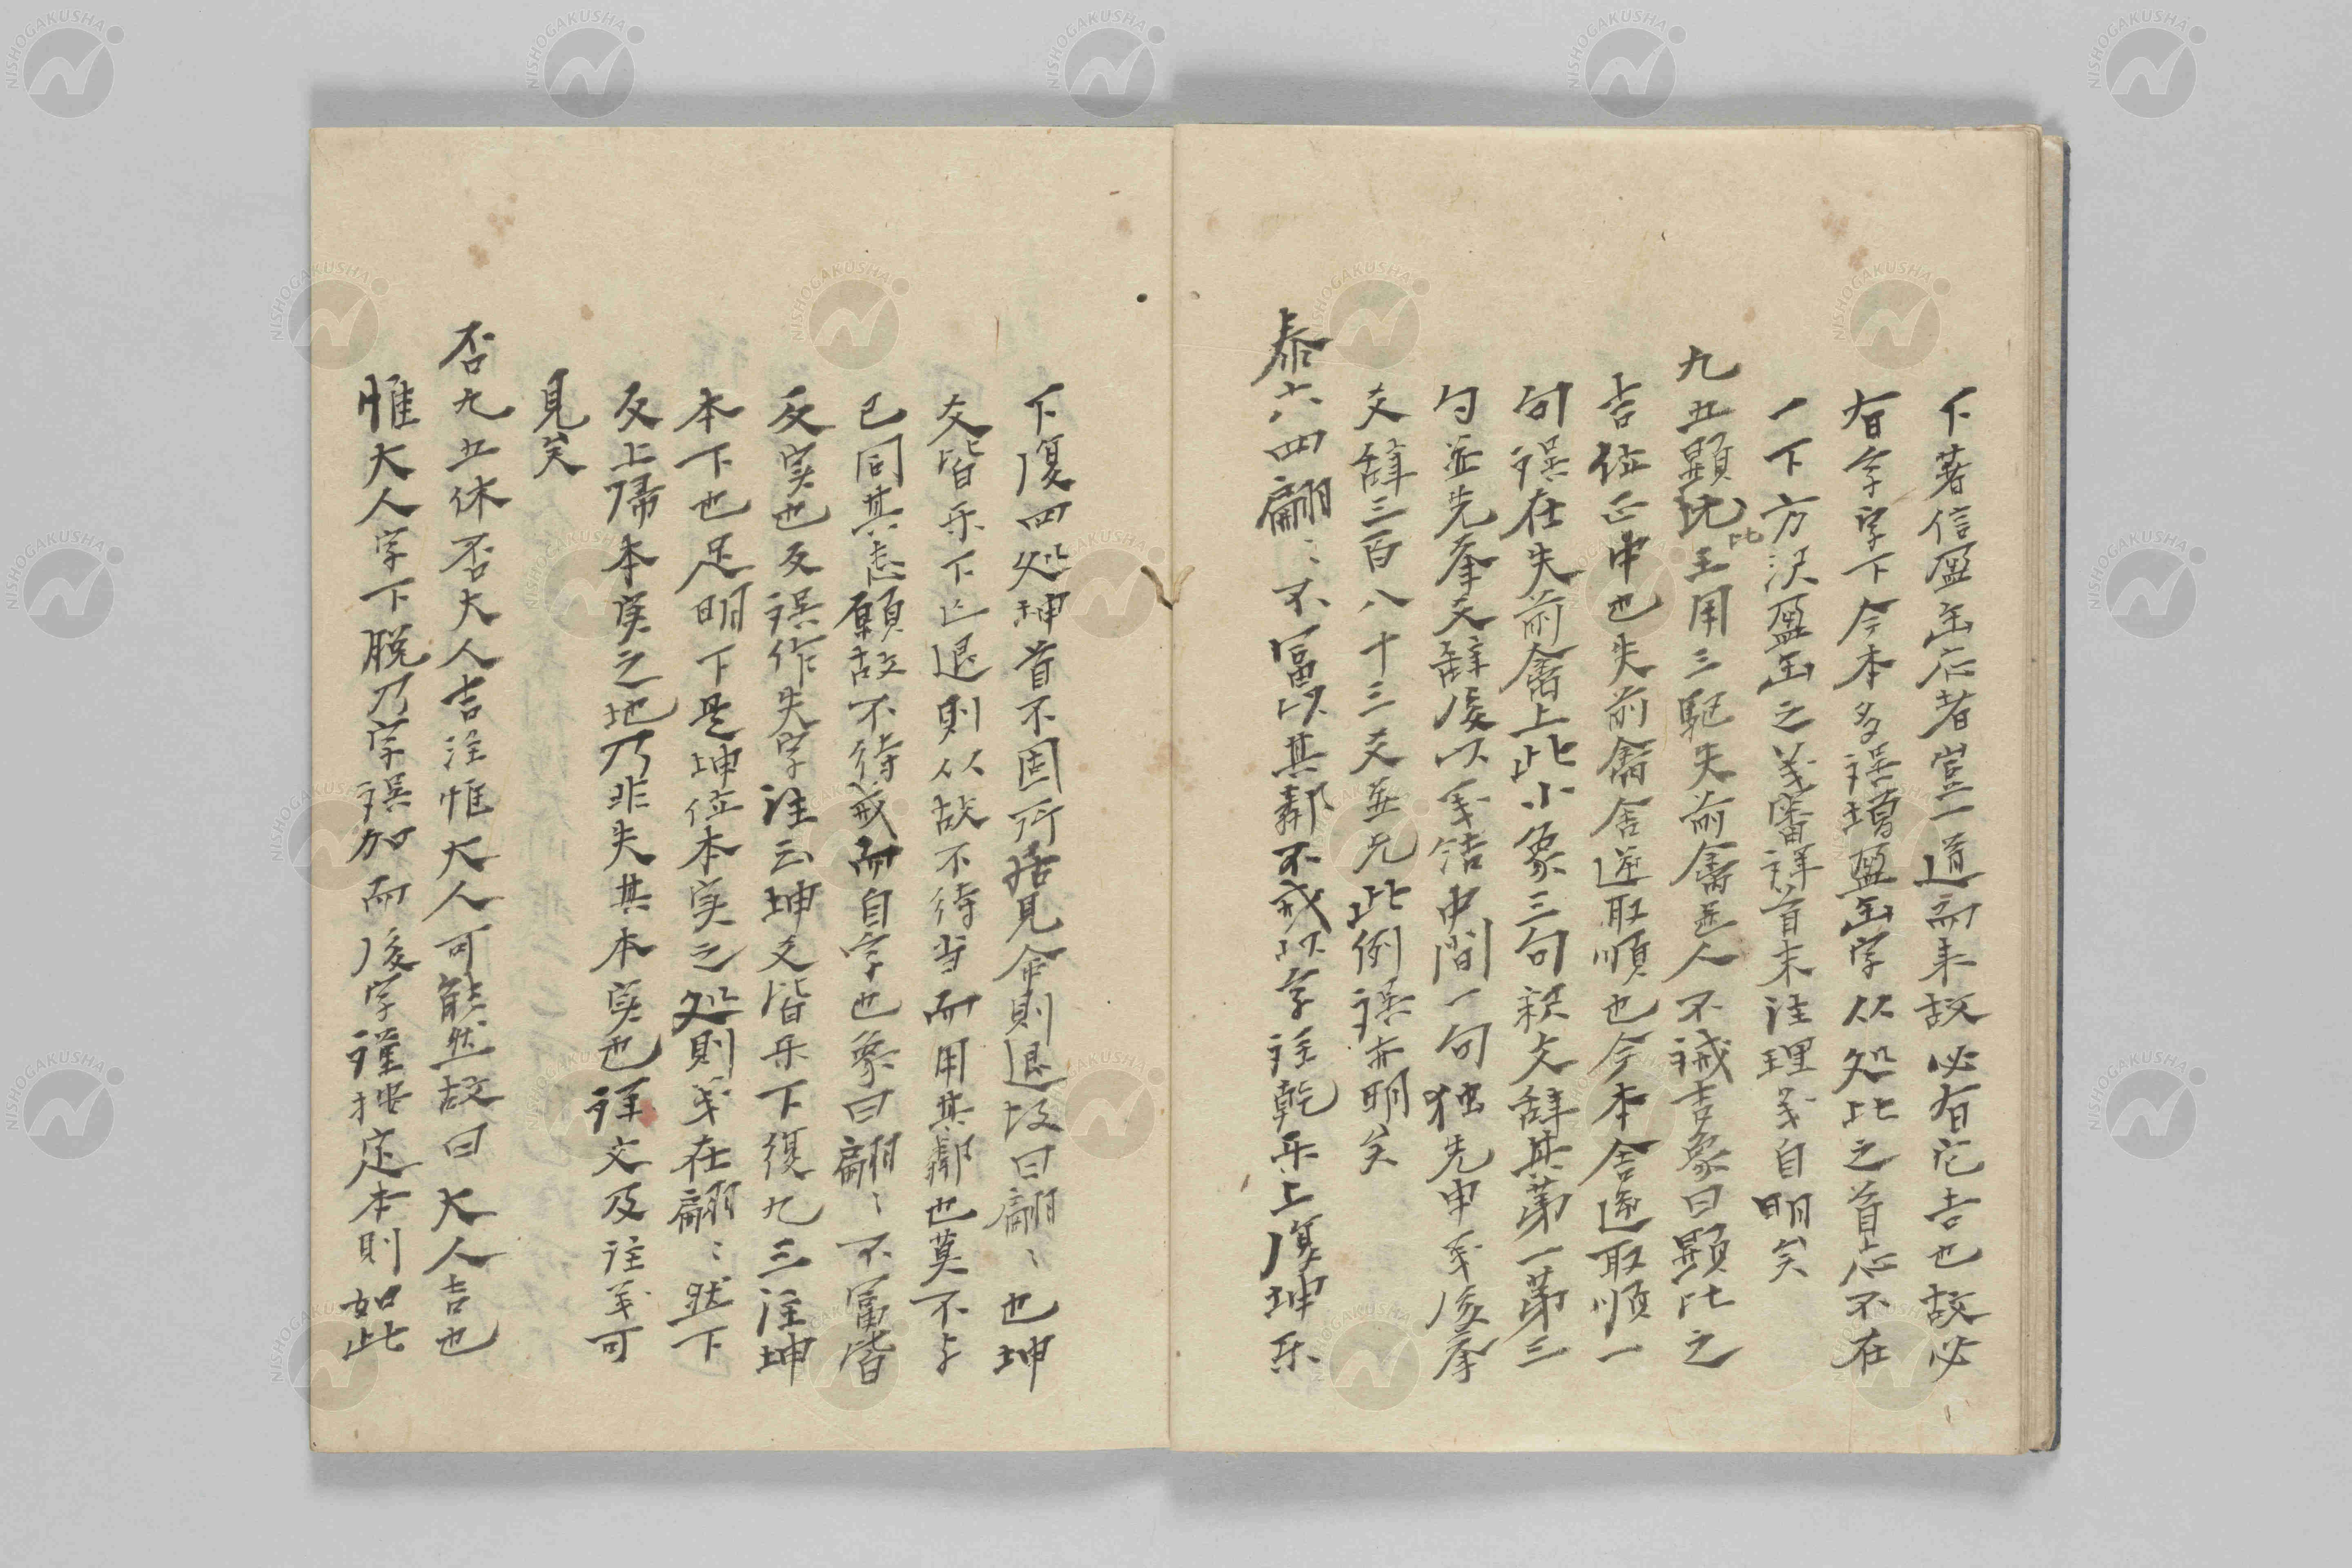 下著信盈缶応者豈一道而来故必有它吉也故必
有孚字下今本多誤増盈缶字从処比之首応不在
一下方沢盈缶之義審詳首末注理義自明矣
九五顕比王用三駈失前禽邑人不誡吉象曰顕比之
比
吉位正中也失前禽舍逆取順也今本舍逆取順一
句誤在失前禽上此小象三句釈爻辞其第一第三
句並先挙爻辞後以義結中間一句独先申義後挙
爻辞三百八十三爻並无此倒誤亦明矣
泰六四翩〻不富以其鄰不戒以孚注乾楽上復坤楽
下復四処坤首不固所居見命則退故曰翩〻也坤
爻皆楽下已退則从故不待当而用其鄰也莫不与
己同其志願故不待戒而自孚也象曰翩〻不富皆
反実也反誤作失字注云坤爻皆楽下復九三注坤
本下也足明下是坤位本実之処則義在翩〻然下
反上帰本実之地乃非失其本実也詳文及注義可
見矣
否九五休否大人吉注惟大人可能然故曰大人吉也
惟大人字下脱乃字誤加而後字謹按定本則如此
NISHOGAKUSHA